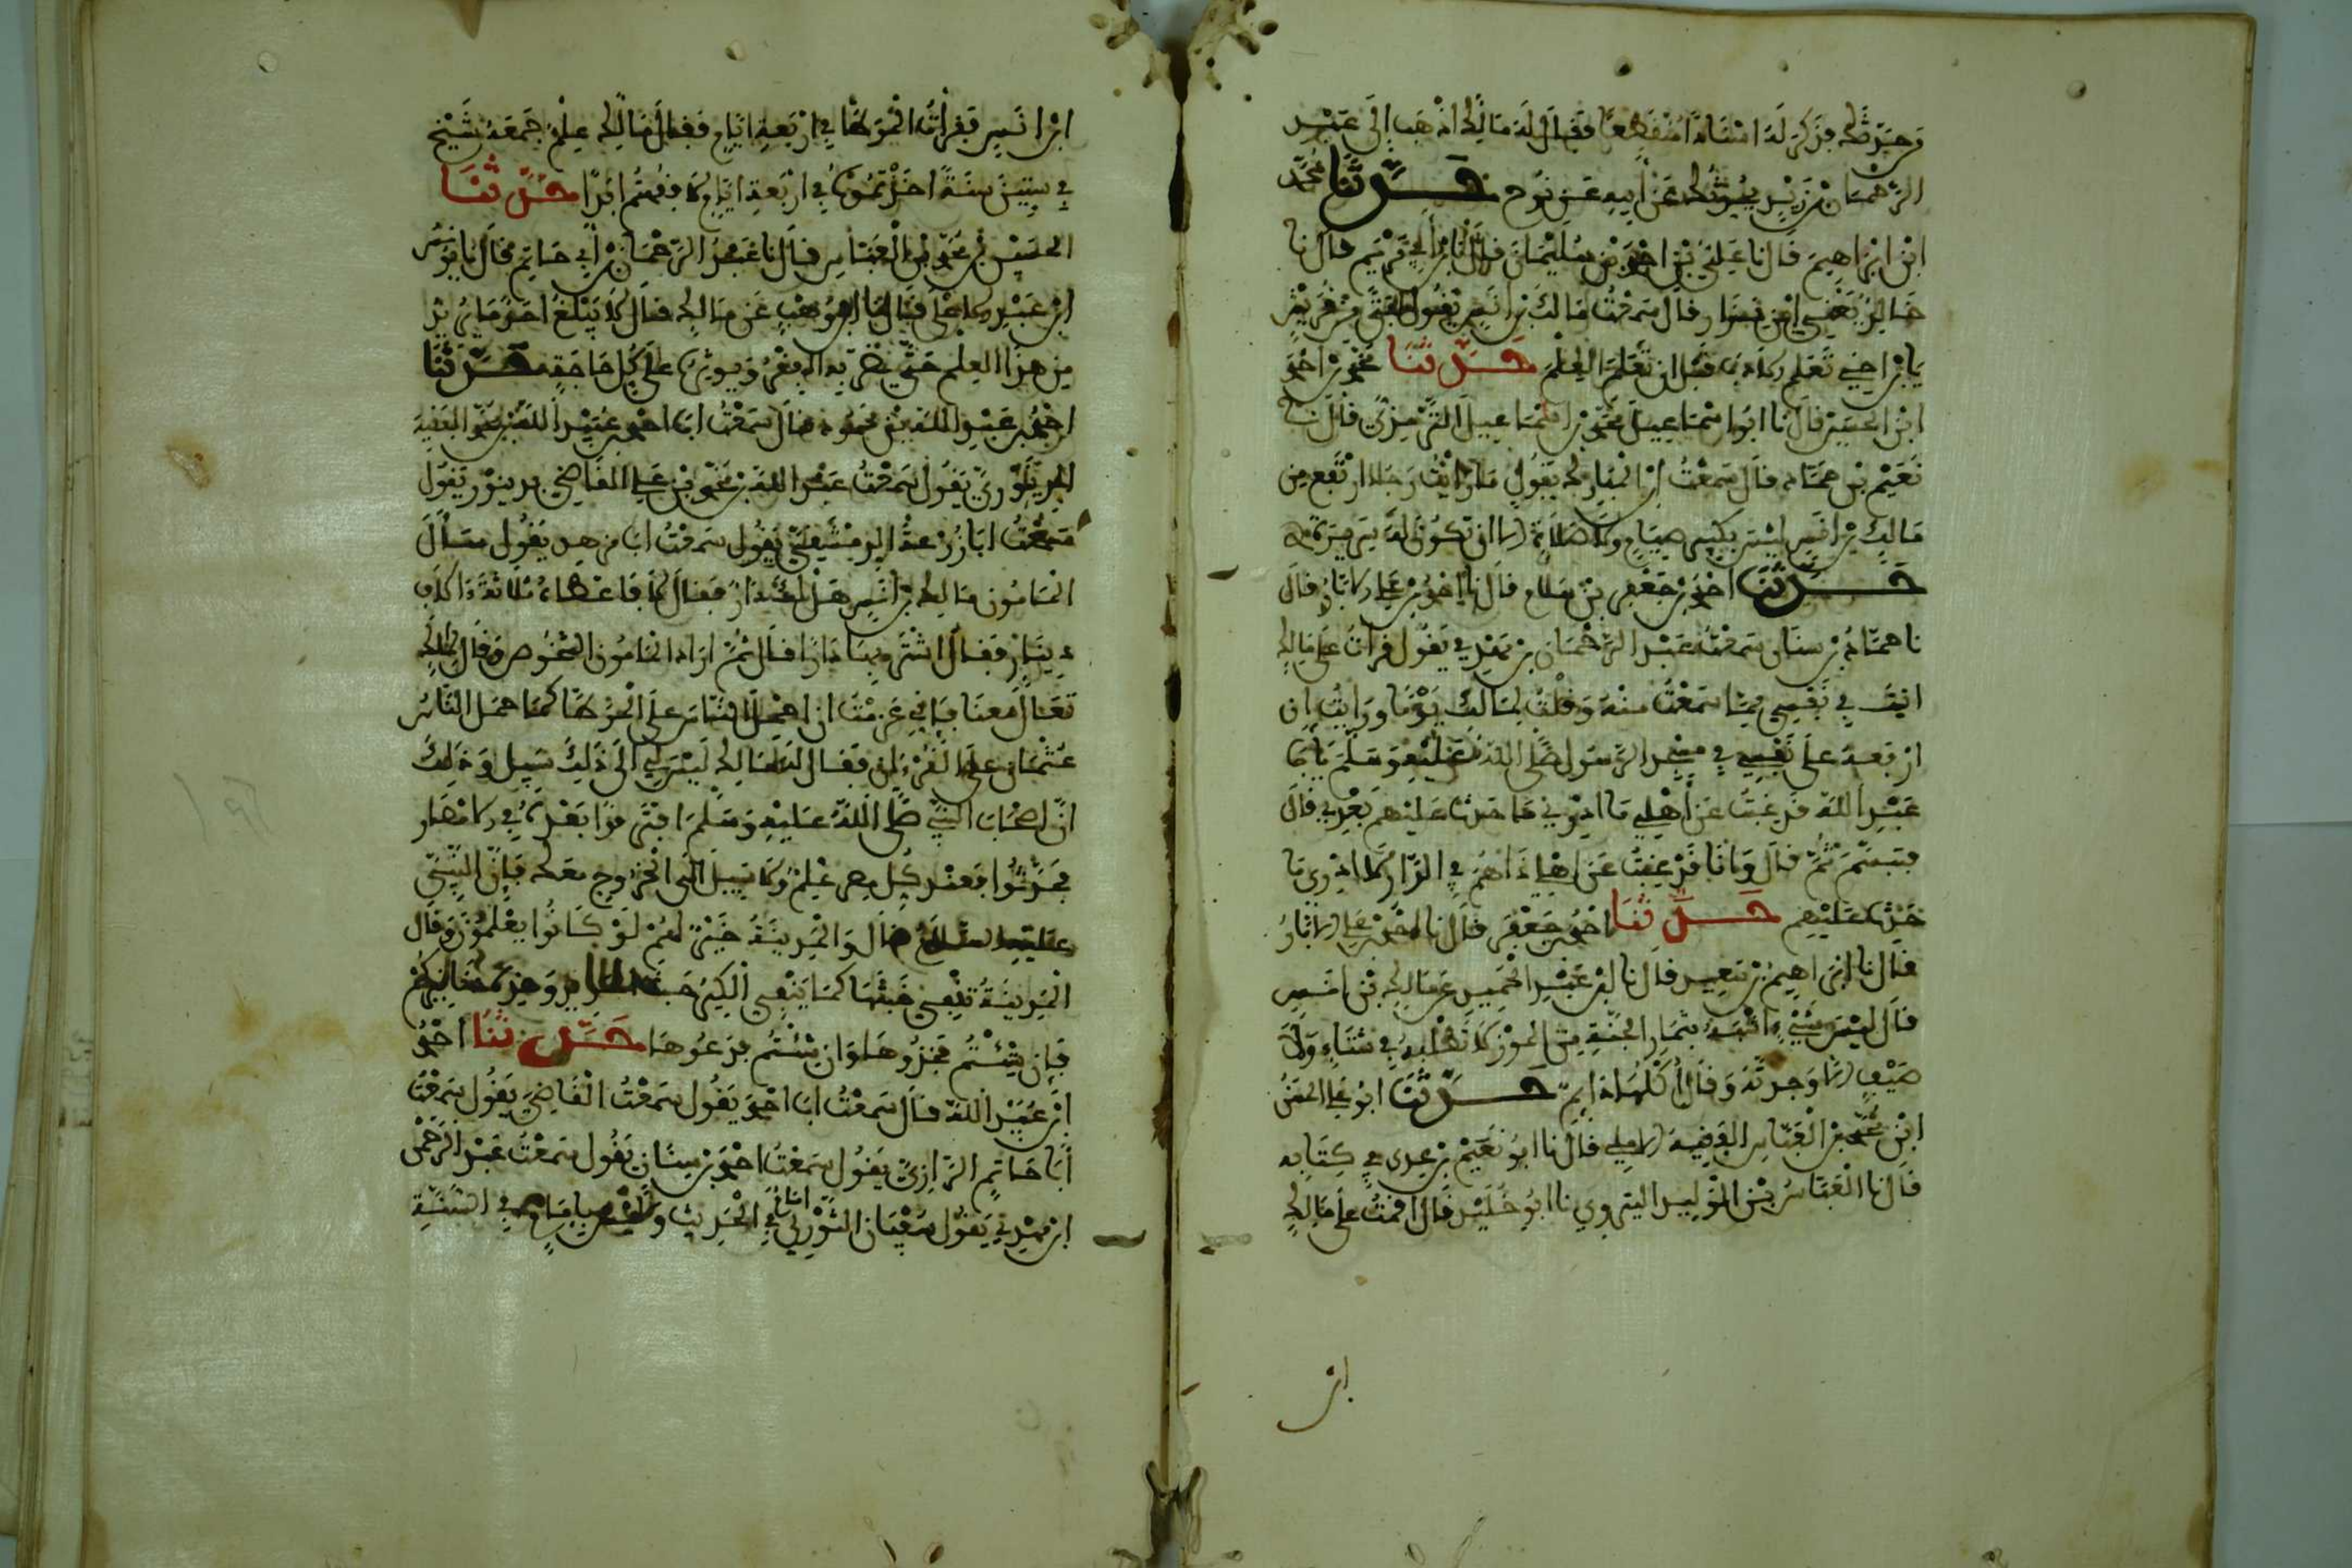 من حدثك فذكر له اسنادا منقطعا فقال له مالك اذهب الى عبد
الرحمان بن زيد يحدثك عن ابيه عن نوح حدثنا محمد
ابن ابراهيم قال نا علي بن احمد بن سليمان قال نا ابن ابي مريم قال نا
خالد بن نزار قال سمعت مالك بن انس يقول لفتى من قريش
يا ابن اخي تعلم الادب قبل ان تعلم العلم حدثنا محمد بن احمد
ابن الحسين قال نا ابو اسماعيل محمد بن اسماعيل الترمذي قال نا
نعيم بن حماد قال سمعت ابن المبارك يقول ما رايت رجلا ارتفع من
مالك بن انس ليس بكثير صيام ولا صلاة الا ان تكون له سريرة
حدثنا احمد بن جعفر بن سلم قال نا احمد بن علي الابار قال
نا سمعت عبد الرحمان بن مهدي يقول قرات على مالك
في نفسي مما سمعت منه وقلت لمالك يوما ورايت ان
ارفعه على نفسي في مسجد الرسول صلى الله عليه وسلم يا ابا
عبد الله قد غبت عن اهلي ما ادري ما حدث عليهم بعدي قال
فتبسم ثم قال وانا قد غبت عن اهلي ذا هم في الدار لا ادري ما
حدث عليهم حدثنا احمد بن جعفر قال نا احمد بن علي الابار
قال نا ابراهيم بن سعيد قال نا ابن عبد الحميد عن مالك بن انس
قال ليس شيء اشبه بثمار الجنة من الموز لا تطلبه في شتاء ولا
صيف الا وجدته وقال اكلها دائم حدثنا ابو علي الحسن
ابن محمد بن العباس الفقيه الاملي قال نا ابو نعيم بن عدي في كتابه
قال نا العباس بن الوليد البيروتي نا ابو خليد قال اقمت على مالك
ابن
ابن انس فقرات الموطا في اربعة ايام فقال مالك علم جمعه شيخ
في ستين سنة اخذتموه في اربعة ايام لا فقهتم ابدا حدثنا
الحسن بن محمد بن العباس قال نا عبد الرحمان بن ابي حاتم قال نا يونس
ابن عبد الاعلى قال نا ابن وهب عن مالك قال لا يبلغ احد ما يريد
من هذا العلم حتى يضر به الفقر ويوثره على كل حاجة حدثنا
احمد بن عبد الله بن محمود قال سمعت ابا احمد عبيد الله بن محمد الفقيه
يقول سمعت عبد الله بن محمد بن علي القاضي بدينور يقول
سمعت ابا زرعة الدمشقي يقول سمعت ابا مسهر يقول سال
المامون مالك بن انس هل لك دار فقال لا فاعطاه ثلاثة الاف
دينار فقال اشتر بها دارا قال ثم اراد المامون الشخوص وقال لمالك
تعال معنا فاني عزمت ان احمل الناس على الموطا كما حمل الناس
عثمان على القرءان فقال له مالك ليس لي الى ذلك سبيل وذلك
ان اصحاب النبي صلى الله عليه وسلم افترقوا بعده في الامصار
فحدثوا فعند كل مصر علم ولا سبيل الى الخروج معك فان النبي
عليه السلام قال والمدينة خير لهم لو كانوا يعلمون وقال
المدينة تنفي خبثها كما ينفي الكير خبث الحديد وهذه دنانيركم
فان شئتم فخذوها وان شئتم فدعوها حدثنا احمد
ابن عبيد الله قال سمعت ابا احمد يقول سمعت القاضي يقول سمعت
ابا حاتم الرازي يقول سمعت احمد بن سنان يقول سمعت عبد الرحمن
ابن مهدي يقول سفيان الثوري امام في الحديث وليس بامام في السنة